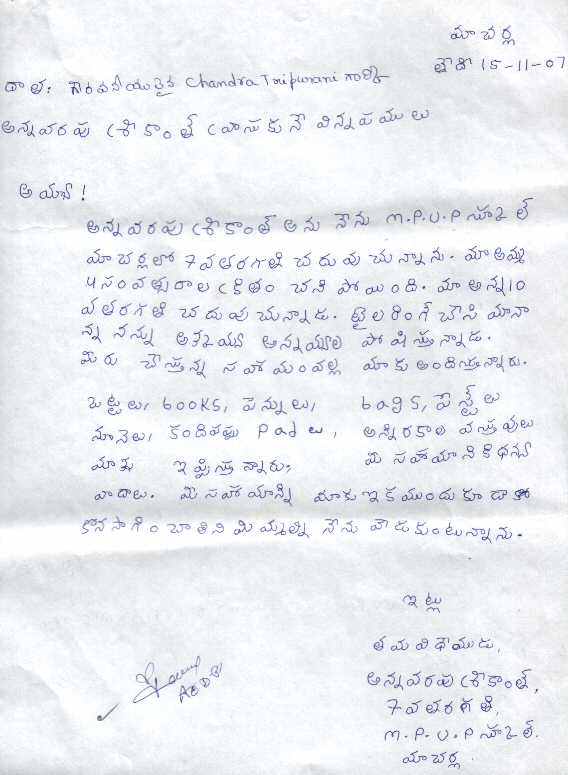 మాచర్ల
తేది 15-11-07
దాత: గౌరవనీయులైన Chandra Tripurani గార్కి
అన్నవరపు శ్రీకాంత్ వ్రాసుకునే విన్నపములు
అయ్యా!
అన్నవరపు శ్రీకాంత్ అను నేను M.P.U.P స్కూల్
మాచర్లలో 7వతరగతి చదువుచున్నాను. మా అమ్మ
4 సంవత్సరాల క్రితం చనిపోయింది. మా అన్న 10
వతరగతి చదువుచున్నాడు. టైలరింగ్ చేసి మానా
న్న నన్ను అన్నయ్యని పోషిస్తున్నాడు.
మీరు చేస్తున్న సహాయంవల్ల మాకు అందిస్తున్నారు.
బట్టలు, books, పెన్నులు, bags, పేస్ట్ లు
నూనెలు, కందిపప్పు Padలు, అన్నిరకాల వస్తువులు
మాకు ఇప్పిస్తున్నారు; మీ సహాయానికి ధన్య
వాదాలు. మీ సహాయాన్ని మాకు ఇకముందు కూడా
కొనసాగించాలిని మిమ్మల్ని నేను వేడుకుంటున్నాను.
ఇట్లు
తమ విధేముడు,
అన్నవరపు శ్రీకాంత్,
7వతరగతి,
M.P.U.P స్కూల్.
మాచర్ల.